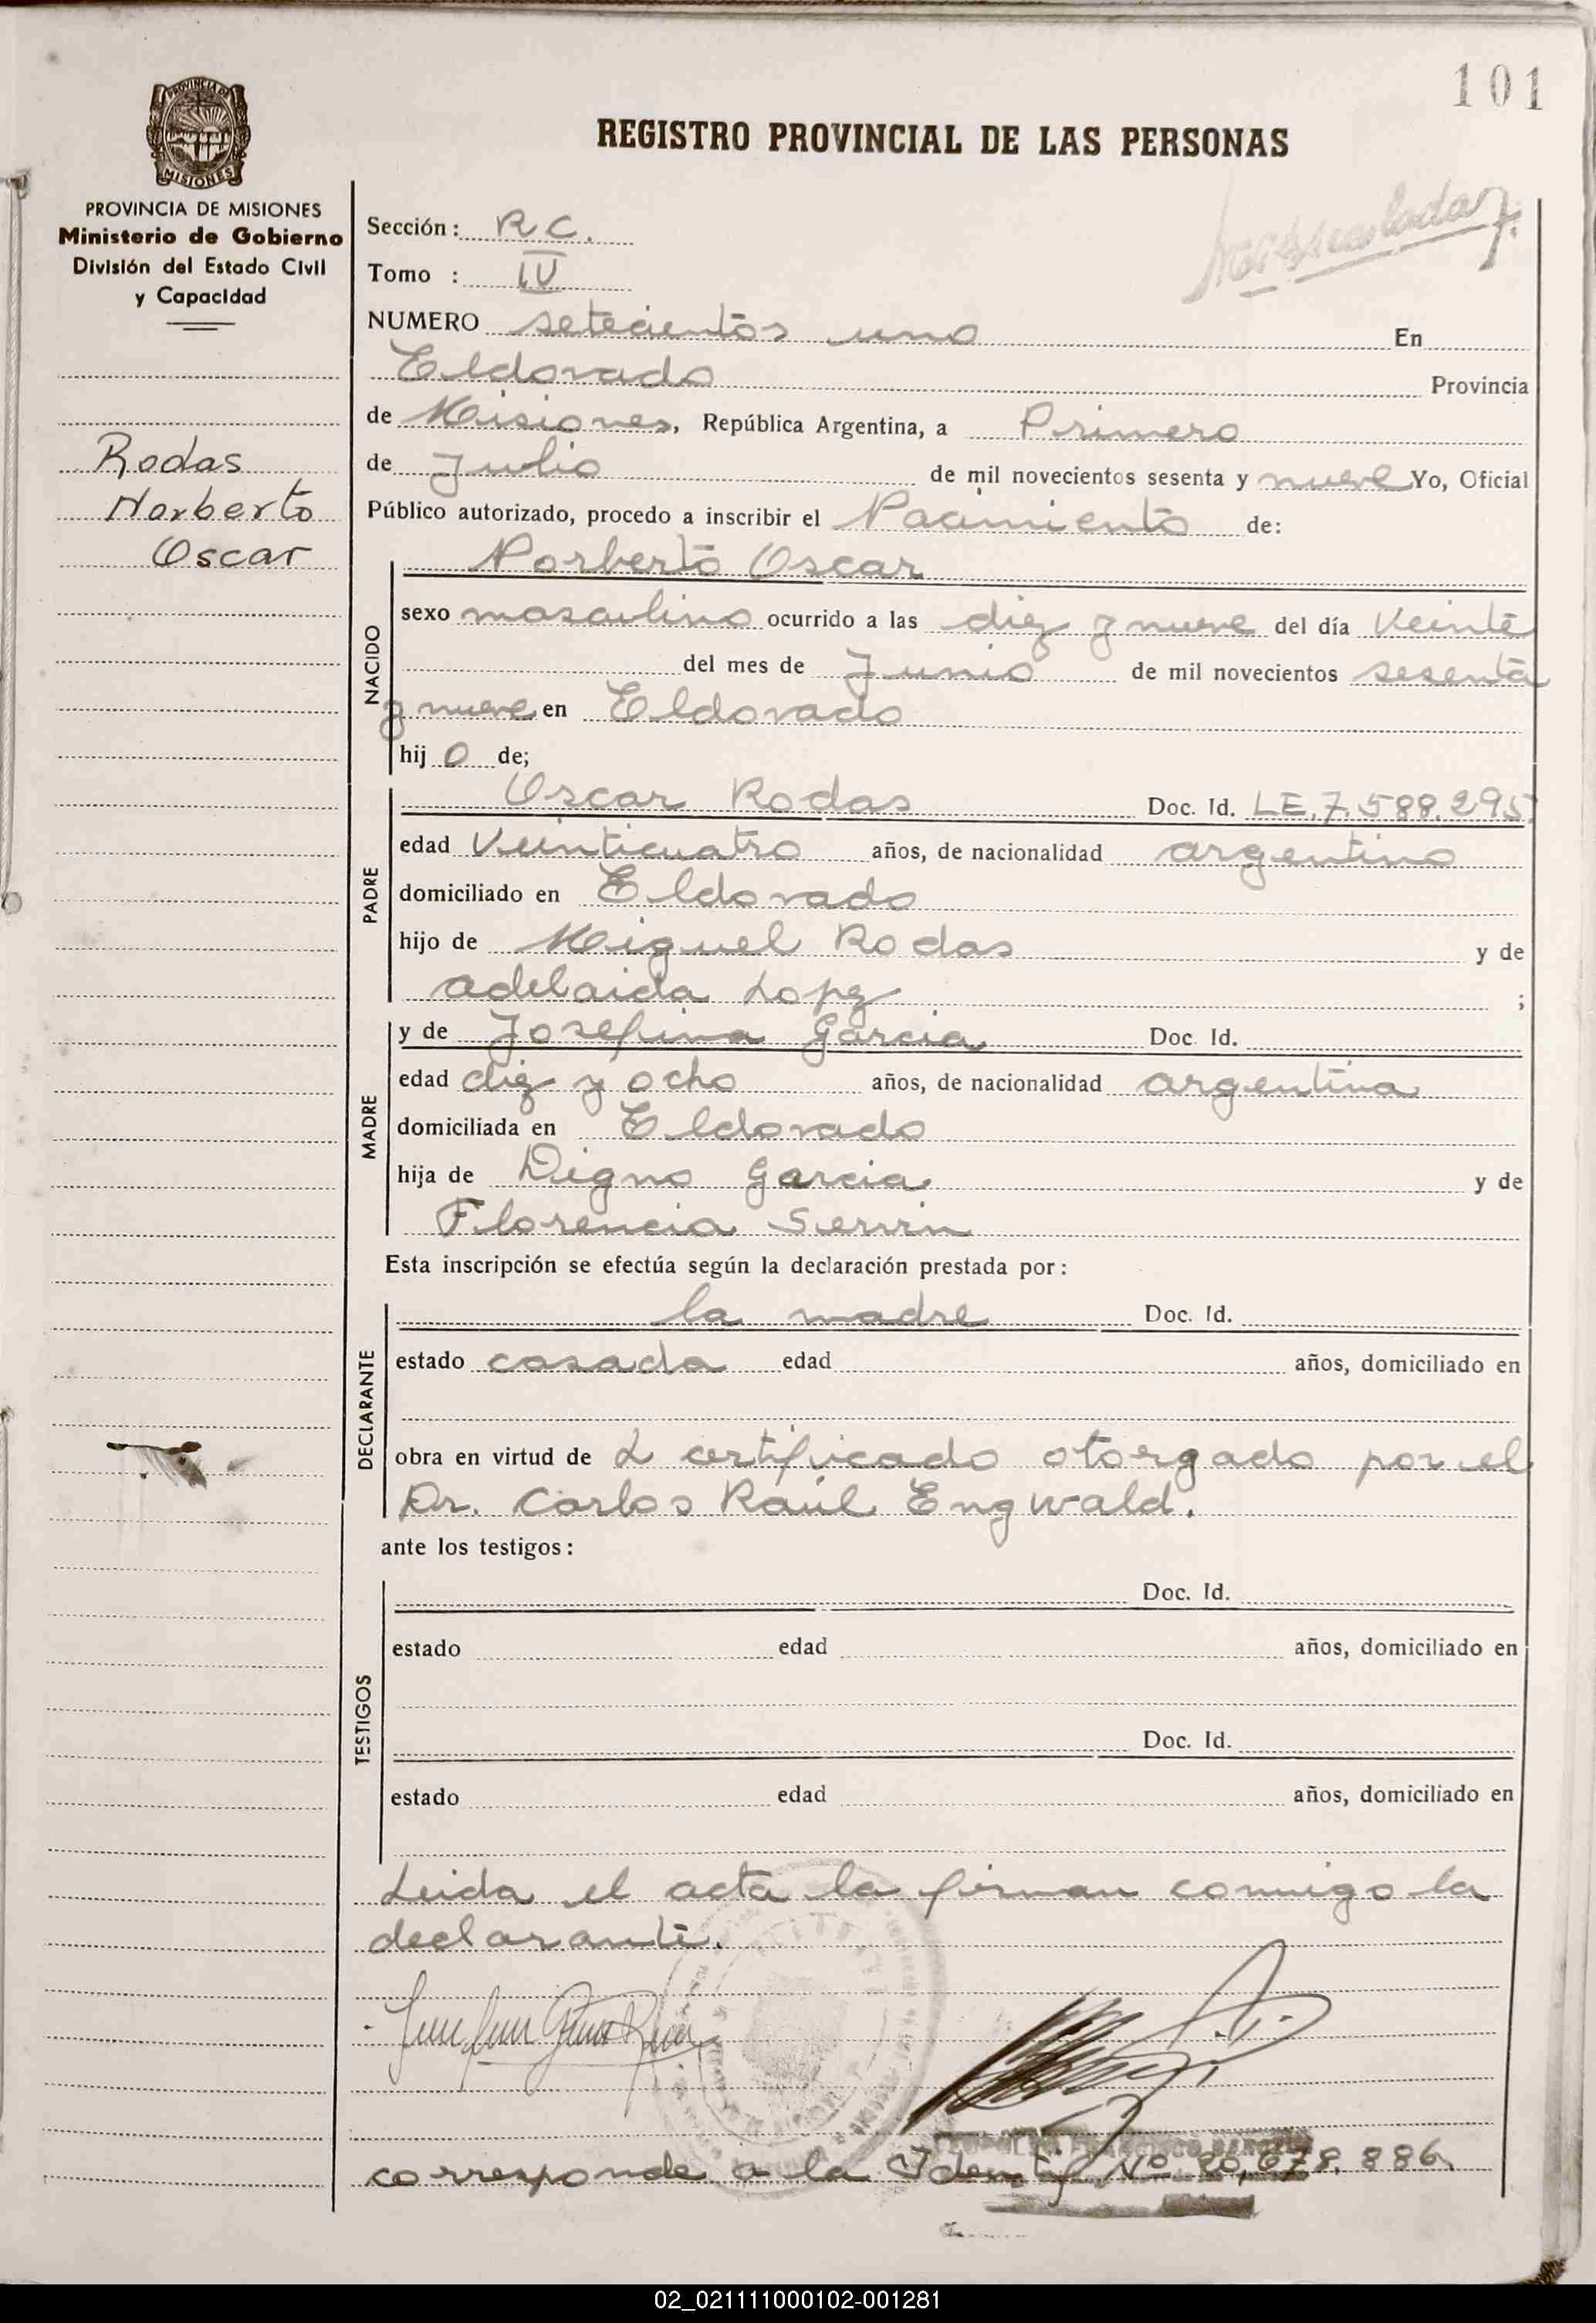 101
PROVINCIA DE
MISIONES
REGISTRO PROVINCIAL DE LAS PERSONAS
PROVINCIA DE MISIONES
Ministerio de Gobierno
División del Estado Civil
y Capacidad
Rodas
Norberto
Oscar
Sección: R C.
Tomo : IV
NUMERO setecientos uno En
Eldorado Provincia
de Misiones, República Argentina, a Primero
de Julio de mil novecientos sesenta y nueve Yo, Oficial
Público autorizado, procedo a inscribir el Nacimiento de:
NACIDO
Norberto Oscar
sexo masculino ocurrido a las diez y nueve del día Veinte
del mes de Junio de mil novecientos sesenta
y nueve en Eldorado
hij o de;
PADRE
Oscar Rodas Doc. Id. LE. 7.588.295.
edad Veinticuatro años, de nacionalidad argentino
domiciliado en Eldorado
hijo de Miguel Rodas y de
adelaida Lopez ;
MADRE
y de Josefina Garcia Doc Id.
edad diez y ocho años, de nacionalidad argentina
domiciliada en Eldorado
hija de Digno Garcia y de
Florencia Servin
Esta inscripción se efectúa según la declaración prestada por:
DECLARANTE
la madre Doc. Id.
estado casada edad años, domiciliado en
obra en virtud de certificado otorgado por el
Dr. Carlos Raúl Engwald.
ante los testigos:
TESTIGOS
Doc. Id.
estado edad años, domiciliado en
Doc. Id.
estado edad años, domiciliado en
Leida el acta la firman conmigo la
declarante.
corresponde a la Identif Nº 20,678.886.
02_021111000102-001281